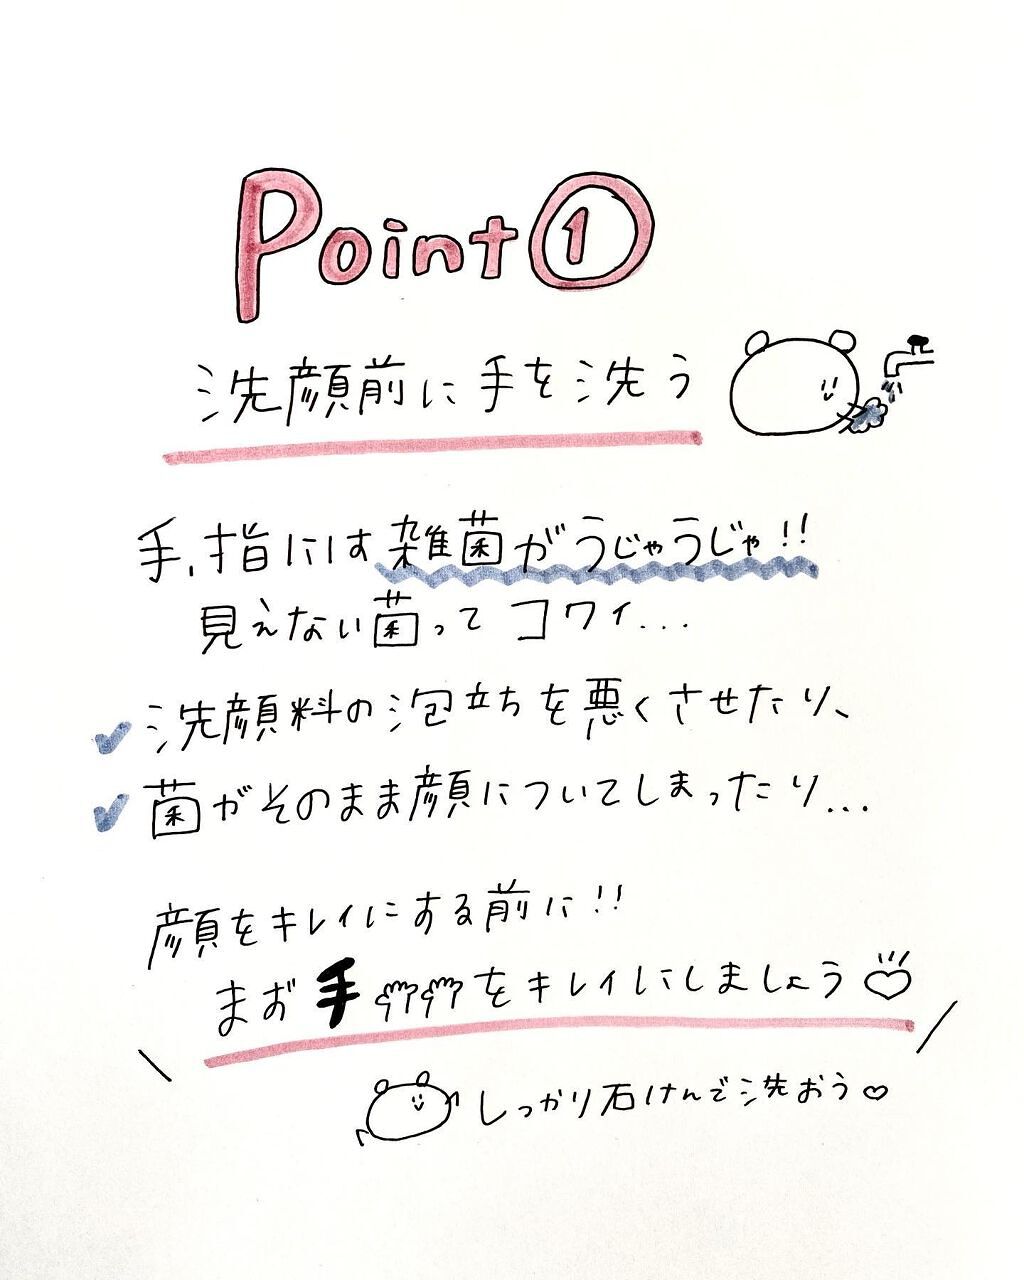 Point①
洗顔前に手を洗う
手、指には雑菌がうじゃうじゃ!!
見えない菌ってコワイ...
洗顔料の泡立ちを悪くさせたり、
菌がそのまま顔についてしまったり...
顔をキレイにする前に!!
まず手をキレイにしましょう♡
しっかり石けんで洗おう♡